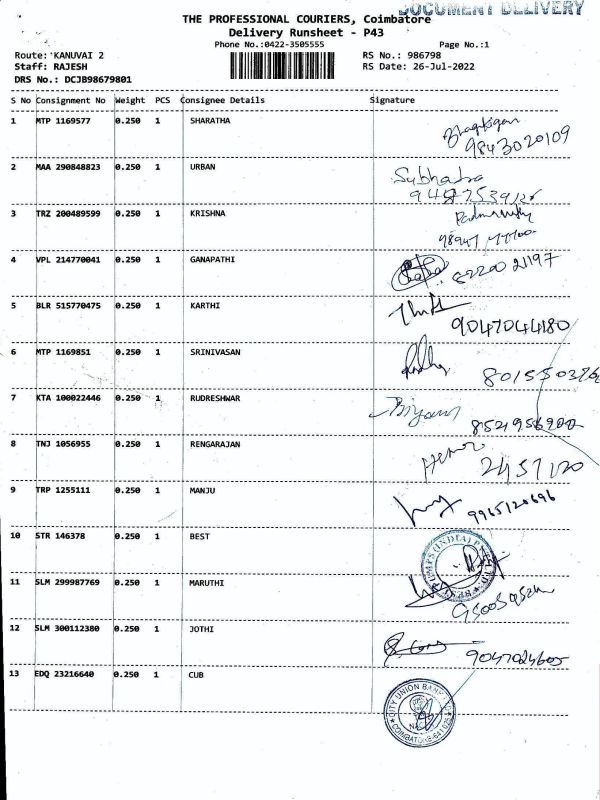 DOCUMENT DELIVERY
THE PROFESSIONAL COURIERS, Coimbatore
Delivery Runsheet - P43
Phone No.:0422-3505555 Page No.:1
Route: KANUVAI 2 RS No.: 986798
Staff: RAJESH RS Date: 26-Jul-2022
DRS No.: DCJB98679801
S No Consignment No Weight PCS Consignee Details Signature
1 MTP 1169577 0.250 1 SHARATHA
9843020109
2 MAA 290848823 0.250 1 URBAN Subhaba
3 TRZ 200489599 0.250 1 KRISHNA
4 VPL 214770041 0.250 1 GANAPATHI
5 BLR 515770475 0.250 1 KARTHI
9047044180
6 MTP 1169851 0.250 1 SRINIVASAN
7 KTA 100022446 0.250 1 RUDRESHWAR
8 TNJ 1056955 0.250 1 RENGARAJAN
2457120
9 TRP 1255111 0.250 1 MANJU
9965120696
10 STR 146378 0.250 1 BEST
11 SLM 299987769 0.250 1 MARUTHI
12 SLM 300112380 0.250 1 JOTHI
9047024605
13 EDQ 23216640 0.250 1 CUB
CITY UNION BANK
COIMBATORE-641 025